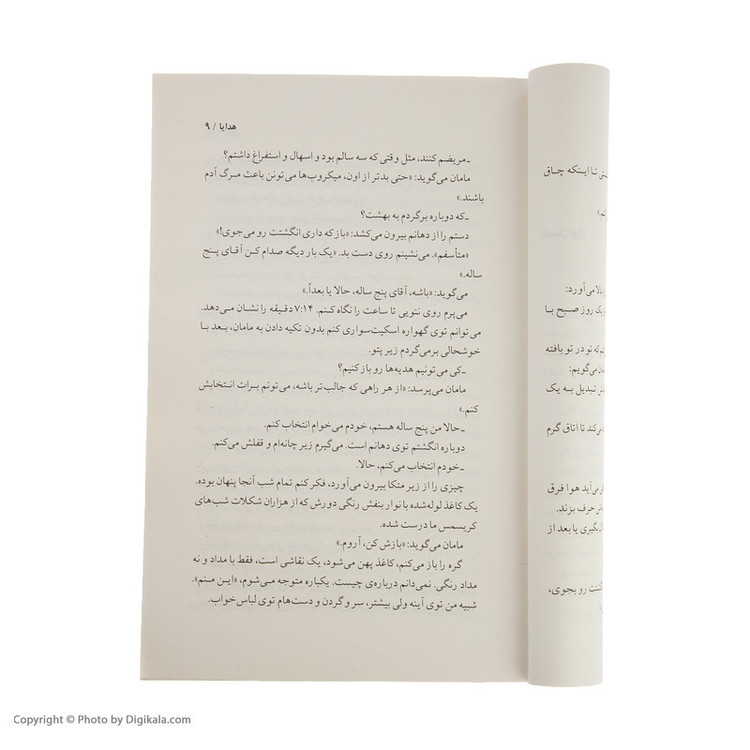 هدایا / ۹
ـ مریضم کنند، مثل وقتی که سه سالم بود و اسهال و استفراغ داشتم؟
مامان می‌گوید: «حتی بدتر از اون، میکروب‌ها می‌تونن باعث مرگ آدم
باشند.»
ـ که دوباره برگردم به بهشت؟
دستم را از دهانم بیرون می‌کشد: «باز که داری انگشتت رو می‌جوی!»
«متأسفم». می‌نشینم روی دست بد. «یک بار دیگه صدام کن آقای پنج
ساله.»
می‌گوید: «باشه، آقای پنج ساله، حالا یا بعداً.»
می‌پرم روی ننویی تا ساعت را نگاه کنم. ۷:۱۴ دقیقه را نشان می‌دهد.
می‌توانم توی گهواره اسکیت‌سواری کنم بدون تکیه دادن به مامان، بعد با
خوشحالی برمی‌گردم زیر پتو.
ـ کی می‌تونیم هدیه‌ها رو باز کنیم؟
مامان می‌پرسد: «از هر راهی که جالب‌تر باشه، می‌تونم برات انتخابش
کنم.»
ـ حالا من پنج ساله هستم، خودم می‌خوام انتخاب کنم.
دوباره انگشتم توی دهانم است. می‌گیرم زیر چانه‌ام و قفلش می‌کنم.
ـ خودم انتخاب می‌کنم، حالا.
چیزی را از زیر متکا بیرون می‌آورد، فکر کنم تمام شب آنجا پنهان بوده.
یک کاغذ لوله‌شده با نوار بنفش رنگی دورش که از هزاران شکلات شب‌های
کریسمس ما درست شده.
مامان می‌گوید: «بازش کن، آروم.»
گره را باز می‌کنم، کاغذ پهن می‌شود، یک نقاشی است، فقط با مداد و نه
مداد رنگی. نمی‌دانم درباره‌ی چیست. یکباره متوجه می‌شوم، «این منم».
شبیه من توی آینه ولی بیشتر، سر و گردن و دست‌هام توی لباس‌خواب.
تا اینکه چاق
بالا می‌آورد:
یک روز صبح با
که تو در تو بافته
می‌گویم:
تبدیل به یک
می‌کند تا اتاق گرم
می‌آید هوا فرق
حرف بزند.
بگیری یا بعد از
رو بجوی،
Copyright © Photo by Digikala.com